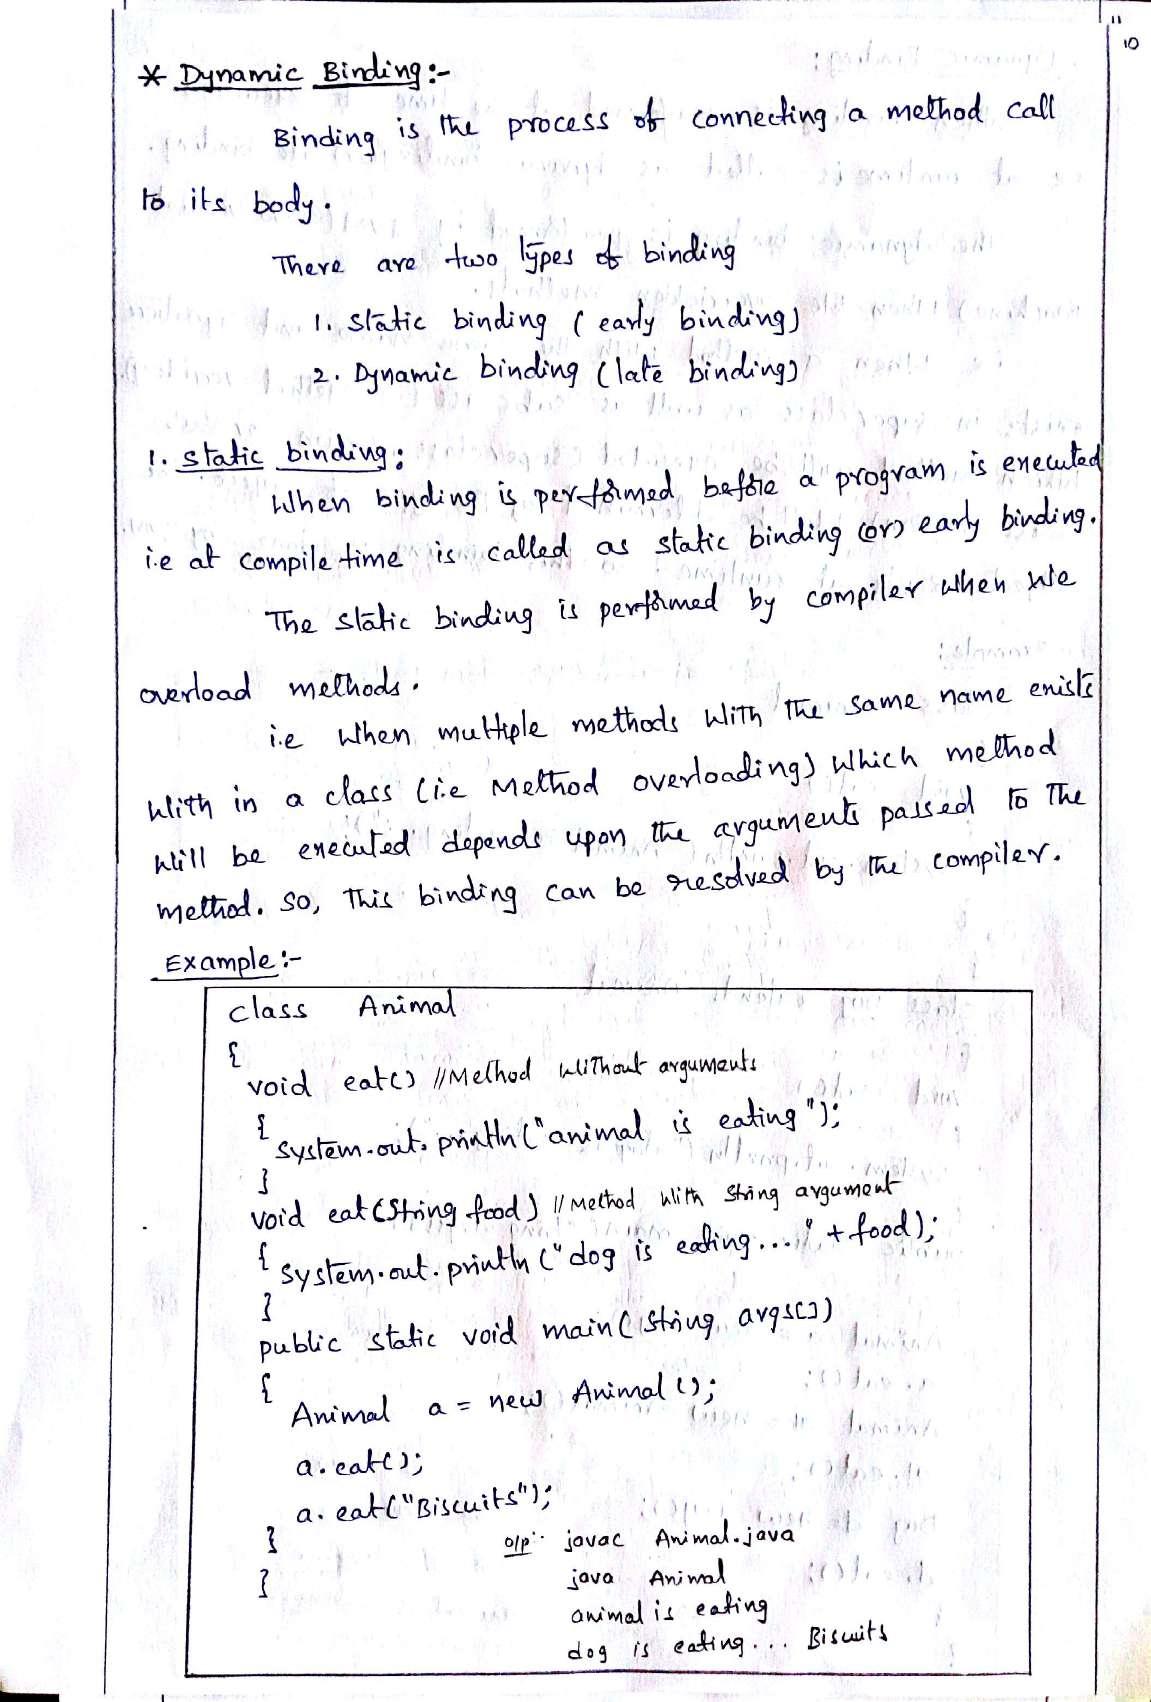 11
10
* Dynamic Binding :-
Binding is the process of connecting a method call
to its body.
There are two types of binding
1. Static binding (early binding)
2. Dynamic binding (late binding)
1. Static binding :
When binding is performed before a program is executed
i.e at compile time is called as static binding (or) early binding.
The static binding is performed by compiler when we
overload methods.
i.e when multiple methods with the same name exists
with in a class (i.e Method overloading) which method
will be executed depends upon the arguments passed to the
method. So, this binding can be resolved by the compiler.
Example :-
class Animal
{
void eat() //Method without arguments
{
System.out.println("animal is eating");
}
void eat(String food) //Method with String argument
{
System.out.println("dog is eating..." + food);
}
public static void main(String args[])
{
Animal a = new Animal();
a.eat();
a.eat("Biscuits");
} o/p: javac Animal.java
} java Animal
animal is eating
dog is eating... Biscuits